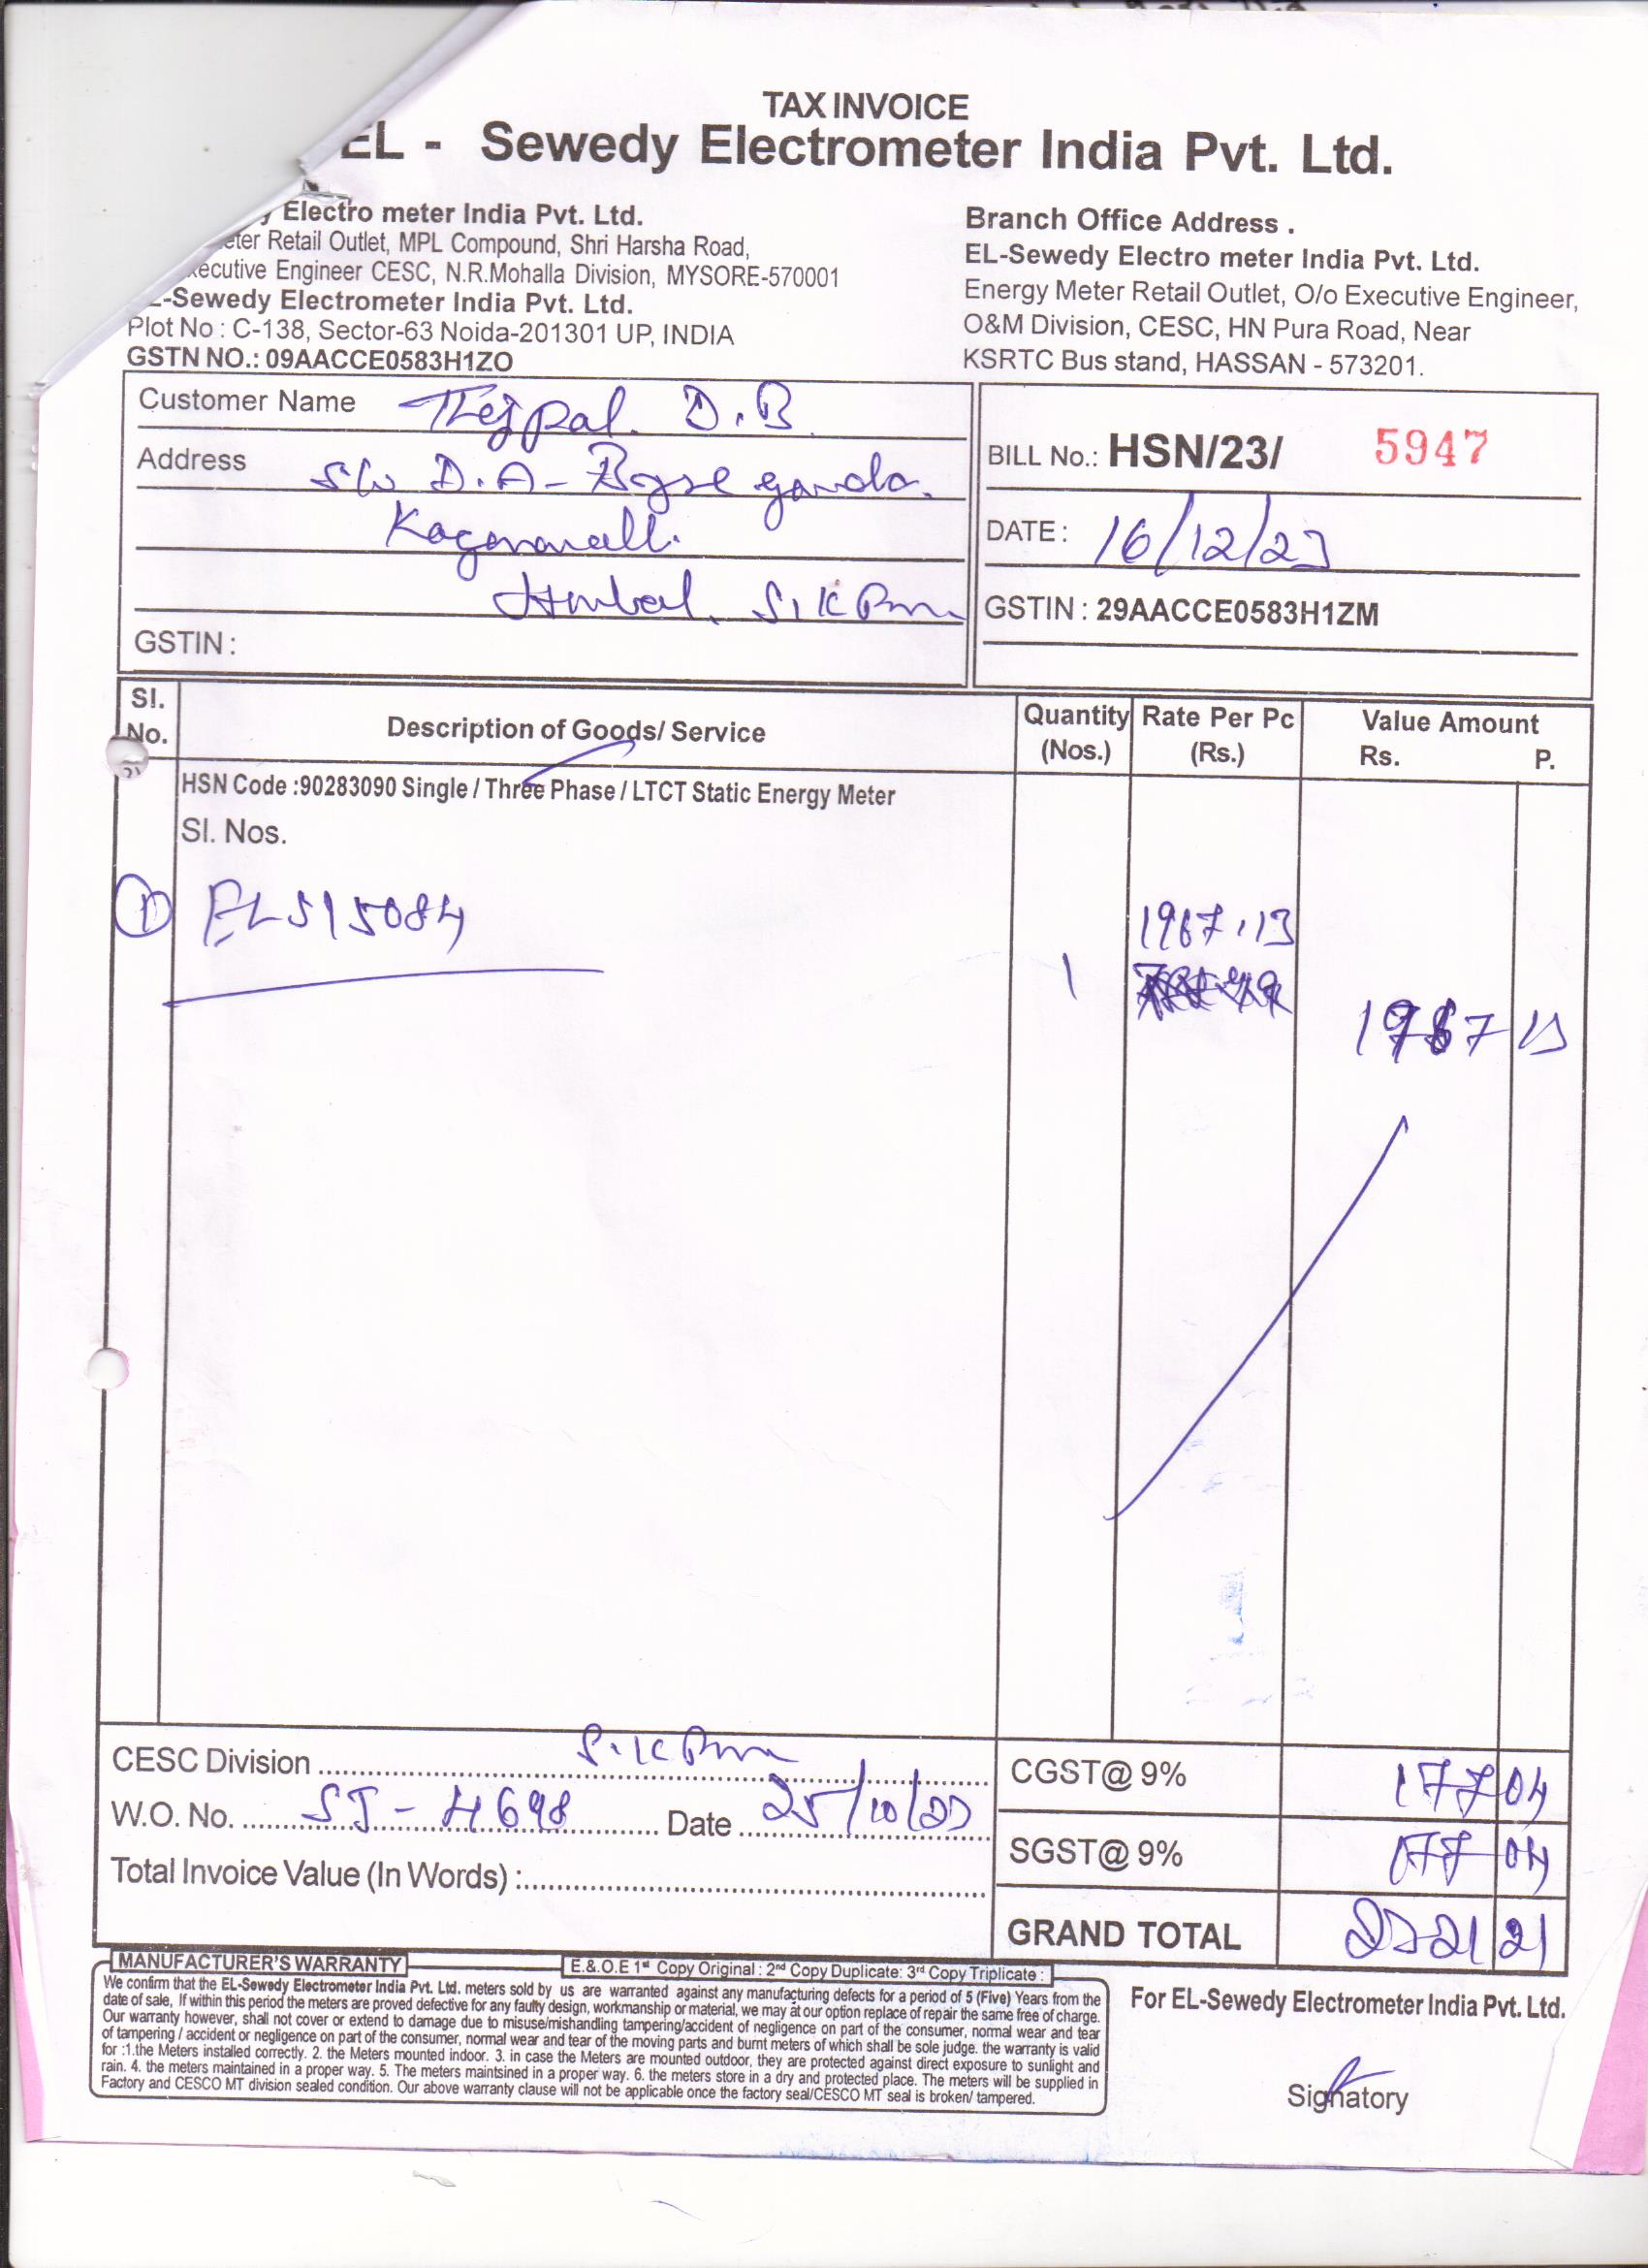 TAX INVOICE
EL - Sewedy Electrometer India Pvt. Ltd.
Electro meter India Pvt. Ltd.
Retail Outlet, MPL Compound, Shri Harsha Road,
Engineer CESC, N.R.Mohalla Division, MYSORE-570001
-Sewedy Electrometer India Pvt. Ltd.
Plot No : C-138, Sector-63 Noida-201301 UP, INDIA
GSTN NO.: 09AACCE0583H1ZO
Branch Office Address .
EL-Sewedy Electro meter India Pvt. Ltd.
Energy Meter Retail Outlet, O/o Executive Engineer,
O&M Division, CESC, HN Pura Road, Near
KSRTC Bus stand, HASSAN - 573201.
Customer Name Thejpal. D.B
Address S/o D.A-
GSTIN :
BILL No.: HSN/23/ 5947
DATE : 16/12/23
GSTIN : 29AACCE0583H1ZM
Sl. No. Description of Goods/ Service Quantity (Nos.) Rate Per Pc (Rs.) Value Amount Rs. P.
HSN Code :90283090 Single / Three Phase / LTCT Static Energy Meter
Sl. Nos.
1 EL515084 1967.13
1 1967 13
CESC Division S.K Pura
W.O. No. SJ-4698 Date 25/10/23
Total Invoice Value (In Words) :
CGST@ 9% 177 04
SGST@ 9% 177 04
GRAND TOTAL 2321 21
MANUFACTURER'S WARRANTY E.&.O.E 1st Copy Original : 2nd Copy Duplicate: 3rd Copy Triplicate :
We confirm that the EL-Sewedy Electrometer India Pvt. Ltd. meters sold by us are warranted against any manufacturing defects for a period of 5 (Five) Years from the
date of sale, If within this period the meters are proved defective for any faulty design, workmanship or material, we may at our option replace of repair the same free of charge.
Our warranty however, shall not cover or extend to damage due to misuse/mishandling tampering/accident of negligence on part of the consumer, normal wear and tear
of tampering / accident or negligence on part of the consumer, normal wear and tear of the moving parts and burnt meters of which shall be sole judge. the warranty is valid
for :1.the Meters installed correctly. 2. the Meters mounted indoor. 3. in case the Meters are mounted outdoor, they are protected against direct exposure to sunlight and
rain. 4. the meters maintained in a proper way. 5. The meters maintsined in a proper way. 6. the meters store in a dry and protected place. The meters will be supplied in
Factory and CESCO MT division sealed condition. Our above warranty clause will not be applicable once the factory seal/CESCO MT seal is broken/ tampered.
For EL-Sewedy Electrometer India Pvt. Ltd.
Signatory